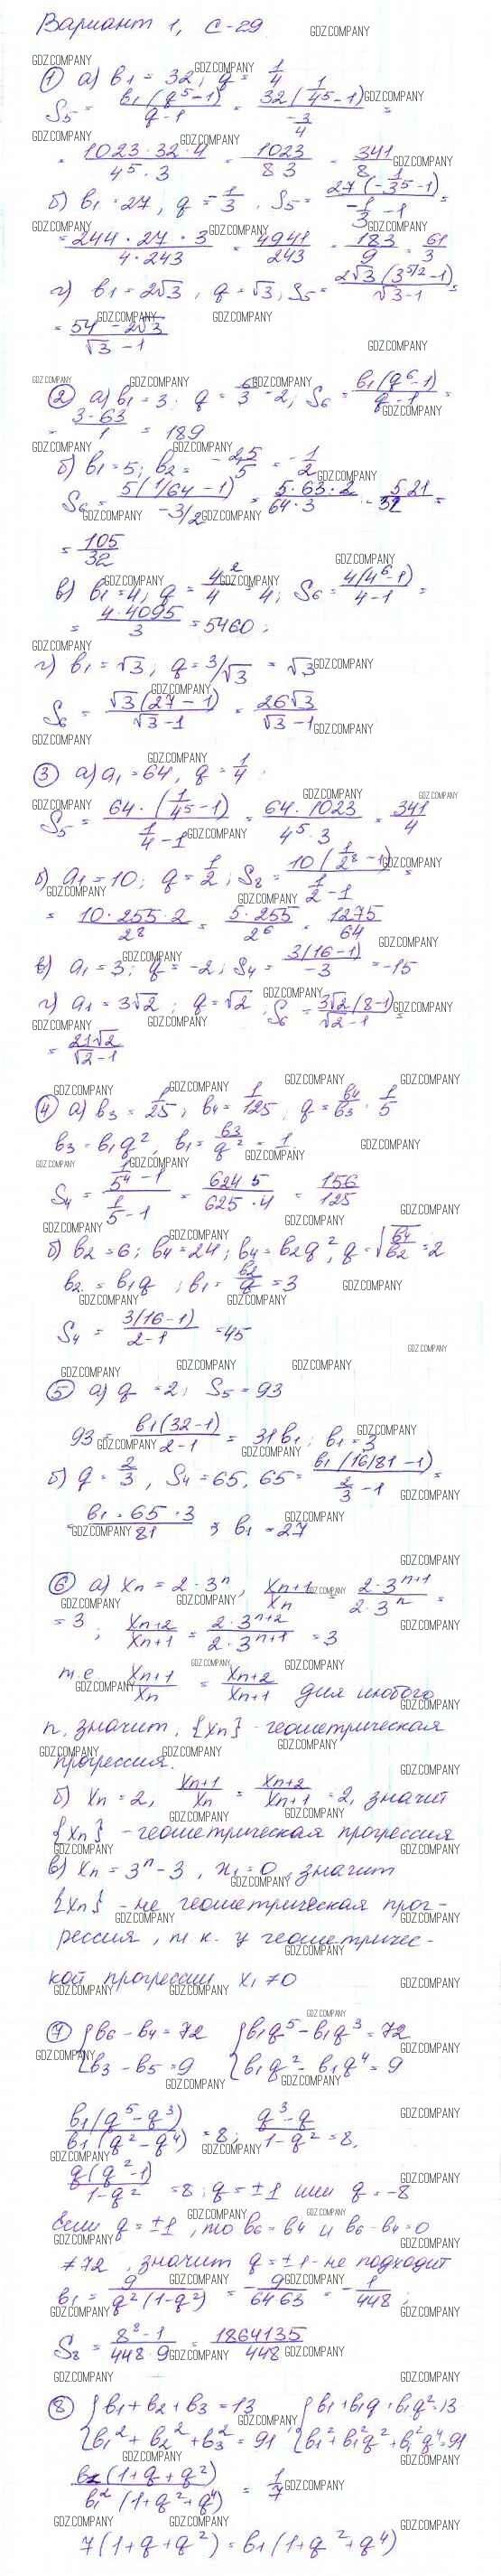 Вариант 1, С-29
① а) b₁ = 32; q = 1/4
S₅ = b₁(q⁵-1)/(q-1) = 32(1/4⁵-1)/(-3/4) =
= 1023·32·4/(4⁵·3) = 1023/(8 3) = 341/8
б) b₁ = 27, q = -1/3. S₅ = 27(-1/3⁵-1)/(-1/3-1) =
= 244·27·3/(4·243) = 4941/243 = 183/9 = 61/3
г) b₁ = 2√3, q = √3; S₅ = 2√3(3^(5/2)-1)/(√3-1) =
= (54-2√3)/(√3-1)
② а) b₁ = 3; q = 6/3 = 2; S₆ = b₁(q⁶-1)/(q-1) =
= 3·63/1 = 189
б) b₁ = 5; b₂ = -2,5/5 = -1/2
S₆ = 5(1/64-1)/(-3/2) = 5·63·2/(64·3) = 5 21/32 =
= 105/32
в) b₁ = 4; q = 4²/4 = 4; S₆ = 4(4⁶-1)/(4-1) =
= 4·4095/3 = 5460;
г) b₁ = √3; q = 3/√3 = √3
S₆ = √3(27-1)/(√3-1) = 26√3/(√3-1)
③ а) a₁ = 64, q = 1/4;
S₅ = 64·(1/4⁵-1)/(1/4-1) = 64·1023/(4⁵·3) = 341/4
б) a₁ = 10; q = 1/2; S₈ = 10(1/2⁸-1)/(1/2-1) =
= 10·255·2/2⁸ = 5·255/2⁶ = 1275/64
в) a₁ = 3; q = -2; S₄ = 3(16-1)/(-3) = -15
г) a₁ = 3√2; q = √2. S₆ = 3√2(8-1)/(√2-1) =
= 21√2/(√2-1)
④ а) b₃ = 1/25; b₄ = 1/125; q = b₄/b₃ = 1/5
b₃ = b₁q², b₁ = b₃/q² = 1.
S₄ = (1/5⁴-1)/(1/5-1) = 624 5/(625·4) = 156/125
б) b₂ = 6; b₄ = 24; b₄ = b₂q², q = √(b₄/b₂) = 2
b₂ = b₁q; b₁ = b₂/q = 3
S₄ = 3(16-1)/(2-1) = 45
⑤ а) q = 2; S₅ = 93
93 = b₁(32-1)/(2-1) = 31b₁; b₁ = 3
б) q = 2/3, S₄ = 65, 65 = b₁(16/81-1)/(2/3-1) =
= b₁·65·3/81; b₁ = 27
⑥ а) xₙ = 2·3ⁿ, xₙ₊₁/xₙ = 2·3ⁿ⁺¹/(2·3ⁿ) =
= 3; xₙ₊₂/xₙ₊₁ = 2·3ⁿ⁺²/(2·3ⁿ⁺¹) = 3
т.е. xₙ₊₁/xₙ = xₙ₊₂/xₙ₊₁ для любого
n, значит, {xₙ} - геометрическая
прогрессия.
б) xₙ = 2, xₙ₊₁/xₙ = xₙ₊₂/xₙ₊₁ = 2, значит
{xₙ} - геометрическая прогрессия
в) xₙ = 3ⁿ-3, x₁ = 0, значит
{xₙ} - не геометрическая прог-
рессия, т к. у геометричес-
кой прогрессии x₁ ≠ 0
⑦ {b₆-b₄ = 72 {b₁q⁵-b₁q³ = 72
{b₃-b₅ = 9 {b₁q²-b₁q⁴ = 9
b₁(q⁵-q³)/(b₁(q²-q⁴)) = 8; (q³-q)/(1-q²) = 8,
q(q²-1)/(1-q²) = 8; q = ±1 или q = -8
Если q = ±1, то b₆ = b₄ и b₆-b₄ = 0
≠ 72, значит q = ±1 - не подходит
b₁ = 9/(q²(1-q²)) = -9/(64 63) = -1/448;
S₈ = (8⁸-1)/(448·9) = 1864135/448
⑧ {b₁+b₂+b₃ = 13 {b₁+b₁q+b₁q² = 13
{b₁²+b₂²+b₃² = 91 {b₁²+b₁²q²+b₁²q⁴ = 91
b₁(1+q+q²)/(b₁²(1+q²+q⁴)) = 1/7
7(1+q+q²) = b₁(1+q²+q⁴)
GDZ.COMPANY